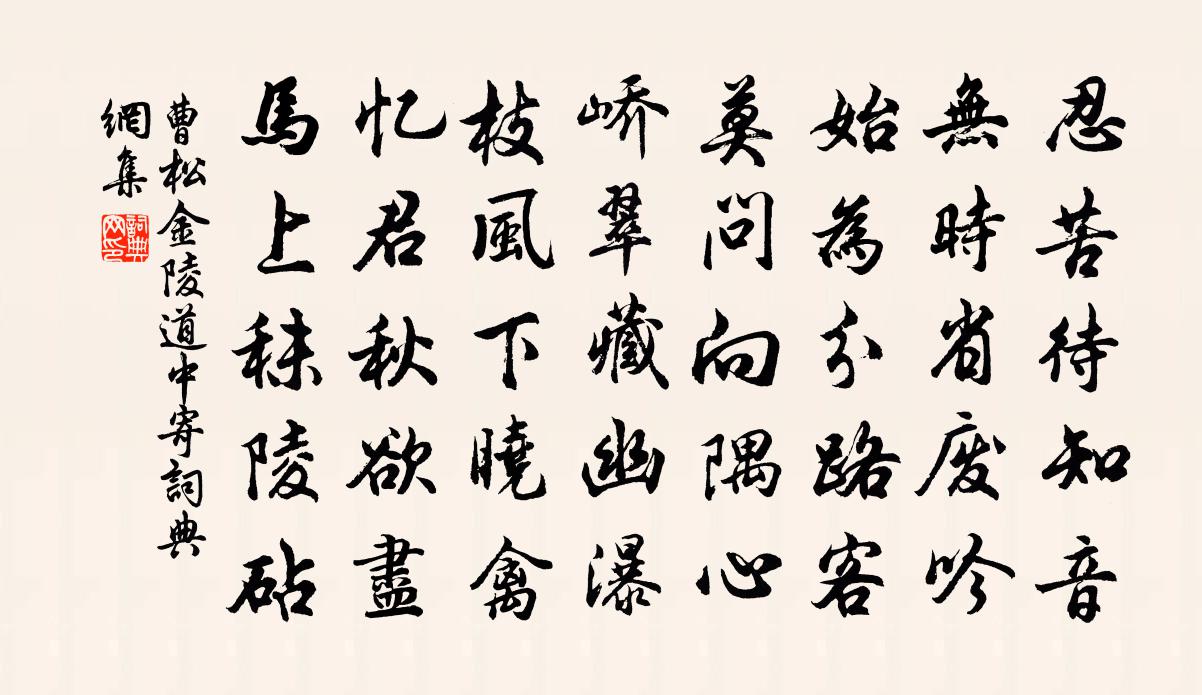 忍苦待知音
無時省廢吟
始為分路客
莫問向隅心
嶠翠藏幽瀑
枝風下曉禽
忆君秋欲盡
馬上秣陵砧
曹松金陵道中寄詞典
網集
詞典
网印